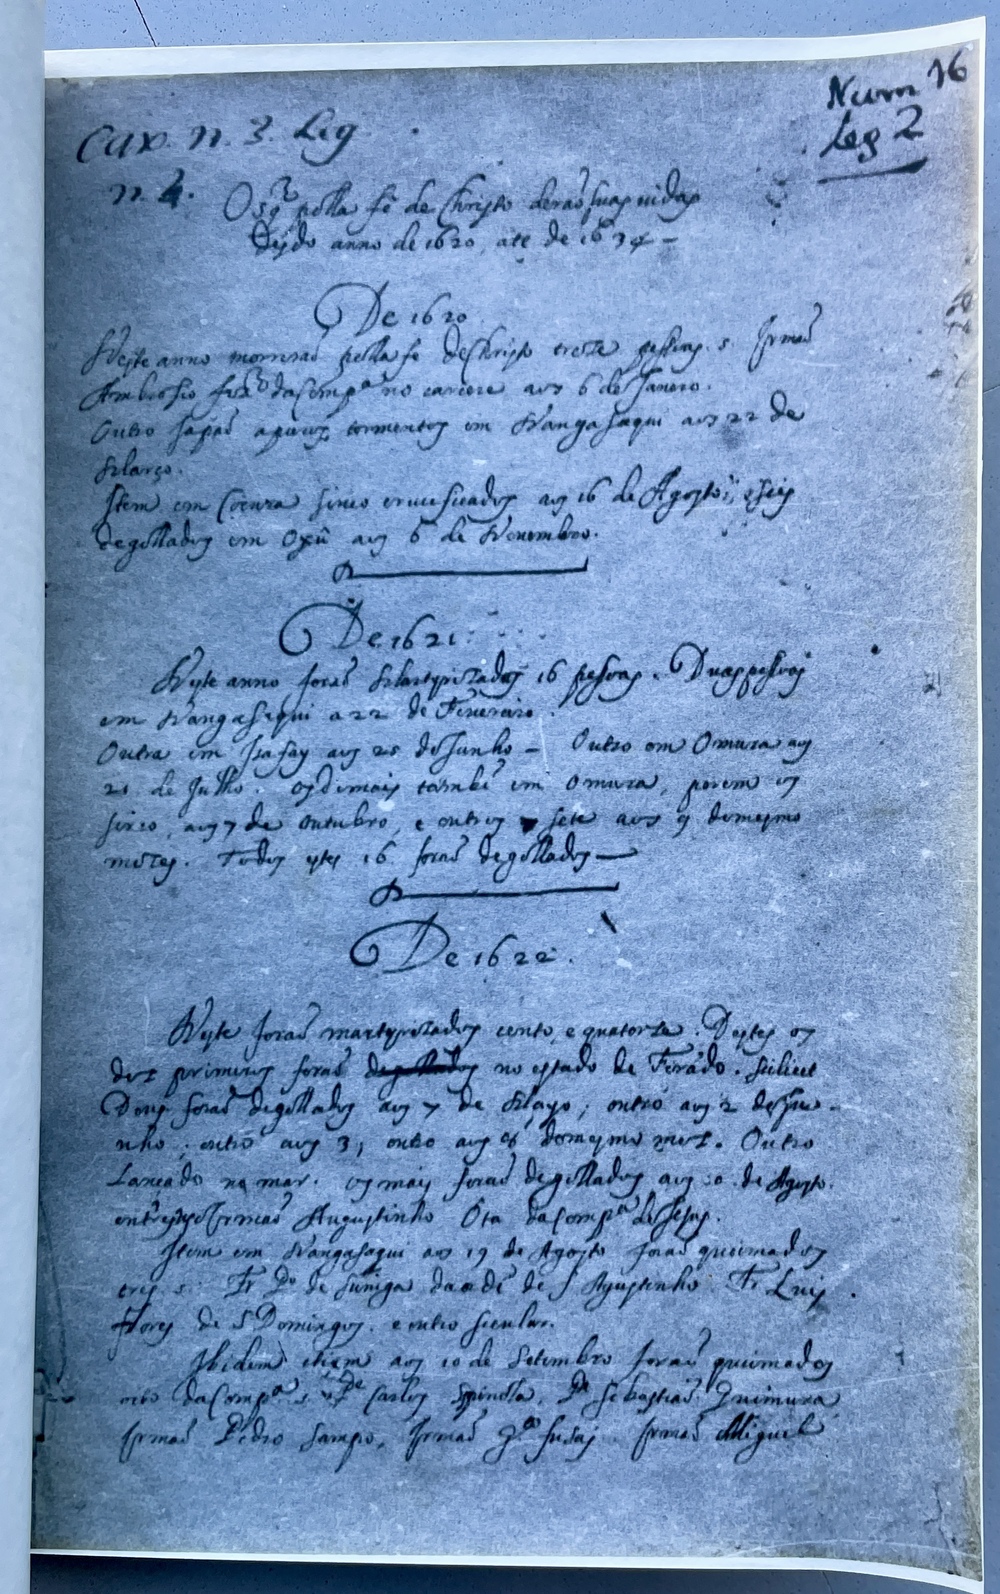 Num 16
Leg 2
Cax. n. 3. Leg
n. 4.
Os q̃ polla fé de Christo derão suas vidas
Desdo anno de 1620, até de 1634 –
De 1620.
Neste anno morrerão polla fé de Christo treze pessoas. s. Irmão
Ambrosio frz̃ da Comp.ª no carcere aos 6 de Janero.
Outro Japão a puros tormentos em Nangasaqui aos 22 de
Março.
Item em Cocura sinco crucificados aos 16 de Agosto; e seis
degollados em Oxû aos 6 de Novembro.
De 1621.
Neste anno forão Martyrizados 16 pesoas. Duas pessoas
em Nangasaqui a 22 de Fevereiro.
Outra em Isafay aos 25 de Junho – Outro em Omura aos
21 de Julho. os demais també em Omura, porem os
sinco, aos 7 de outubro, e outros sete aos 9 do mesmo
mes. Todos estes 16 forão degollados —
De 1622.
Neste forão martyrizados cento, e quatorze. Destes os
dez primeiros forão no estado de Firãdo. scilicet
Dous forão degollados aos 7 de Mayo; outro aos 2 de Ju-
nho; outro aos 3, outro aos 8 do mesmo mez. Outro
Lançado no mar. os mais forão degollados aos 10 de Agosto.
entre estes o Irmão Augustinho Ota da Comp.ª de Jesus.
Item em Nangasaqui aos 19 de Agosto forão queimados
tres s. Fr. P.º de Suniga da ordẽ de S Agustinho. Fr. Luis
flores de S Domingos. e outro secular.
Ibidem etiam aos 10 de Setembro forão queimados
nove da Comp.ª s. o P.e Carlos Spinola, P.e Sebastião Quimura
Irmão Pedro Sampo, Irmão G.lo fusai. Irmão Miguel